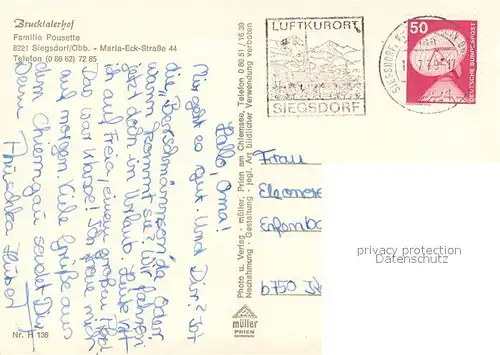 Brucktalerhof
Familie Pousette
8221 Siegsdorf/Obb. - Maria-Eck-Straße 44
Telefon (0 86 62) 72 85
Hallo, Oma!
Mir geht es gut. Und Dir? Ist
die „ da oder
wann kommt sie? Wir fahren
jetzt doch in Urlaub. Leute
ich auf Freia, einem großen
Das war klasse! Ich freue mich
auf morgen. Viele Grüße aus
dem Chiemgau sendet Dir
Deine
Nr. H 136
Photo u. Verlag - müller, Prien am Chiemsee, Telefon 0 80 51 / 16 39
Nachahmung - Gestaltung - jegl. Art bildlicher Verwendung verboten
müller
PRIEN
LUFTKURORT
SIEGSDORF
50
DEUTSCHE BUNDESPOST
SIEGSDORF
Frau
Eleonore
6750
privacy protection
AnsichtskartenCenter.de